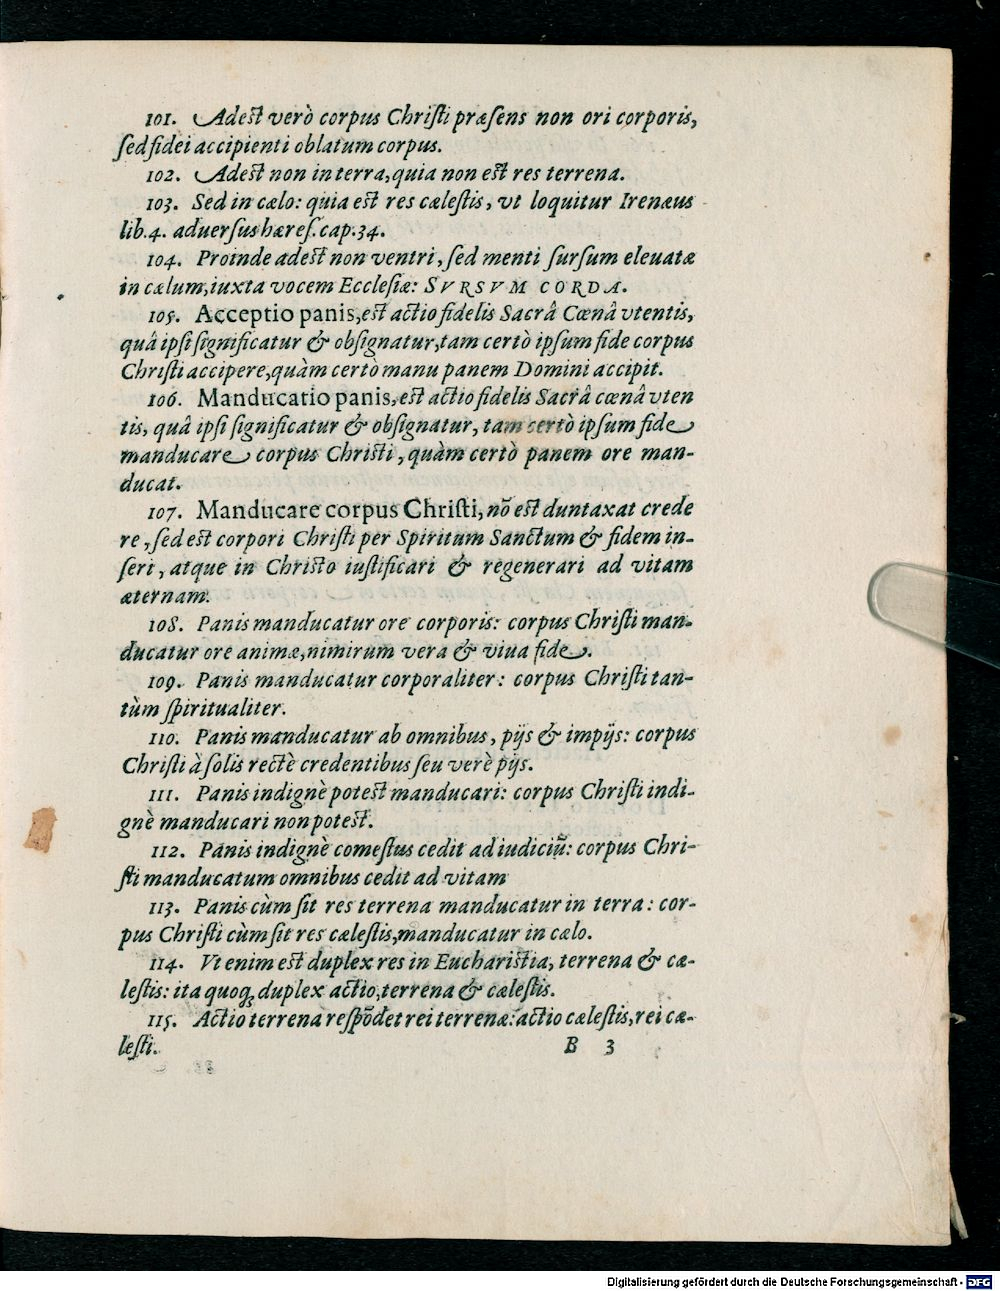 101. Adest verò corpus Christi præsens non ori corporis,
sed fidei accipienti oblatum corpus.
102. Adest non in terra, quia non est res terrena.
103. Sed in cælo: quia est res cælestis, vt loquitur Irenæus
lib.4. aduersus hæres. cap.34.
104. Proinde adest non ventri, sed menti sursum eleuatæ
in cælum, iuxta vocem Ecclesiæ: SVRSVM CORDA.
105. Acceptio panis, est actio fidelis Sacrâ Cœnâ vtentis,
quâ ipsi significatur & obsignatur, tam certò ipsum fide corpus
Christi accipere, quàm certò manu panem Domini accipit.
106. Manducatio panis, est actio fidelis Sacrâ cœnâ vten
tis, quâ ipsi significatur & obsignatur, tam certò ipsum fide
manducare corpus Christi, quàm certò panem ore man-
ducat.
107. Manducare corpus Christi, nō est duntaxat crede
re, sed est corpori Christi per Spiritum Sanctum & fidem in-
seri, atque in Christo iustificari & regenerari ad vitam
æternam.
108. Panis manducatur ore corporis: corpus Christi man-
ducatur ore animæ, nimirum vera & viua fide.
109. Panis manducatur corporaliter: corpus Christi tan-
tùm spiritualiter.
110. Panis manducatur ab omnibus, pijs & impijs: corpus
Christi à solis rectè credentibus seu verè pijs.
111. Panis indignè potest manducari: corpus Christi indi-
gnè manducari non potest.
112. Panis indignè comestus cedit ad iudiciū: corpus Chri-
sti manducatum omnibus cedit ad vitam
113. Panis cùm sit res terrena manducatur in terra: cor-
pus Christi cùm sit res cælestis, manducatur in cælo.
114. Vt enim est duplex res in Eucharistia, terrena & cæ-
lestis: ita quoq; duplex actio, terrena & cælestis.
115. Actio terrena respōdet rei terrenæ: actio cælestis, rei cæ-
lesti.
B 3
Digitalisierung gefördert durch die Deutsche Forschungsgemeinschaft - DFG